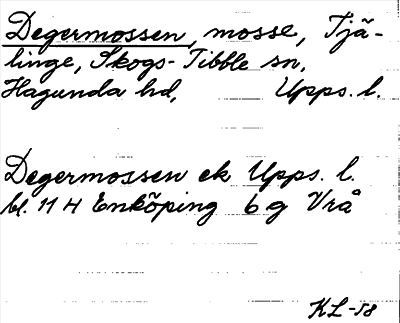 Degermossen, mosse, Tjä-
linge, Skogs-Tibble sn,
Hagunda hd, Upps. l.
Degermossen ek Upps. l.
bl. 11 H Enköping 6 g Vrå
KL-58